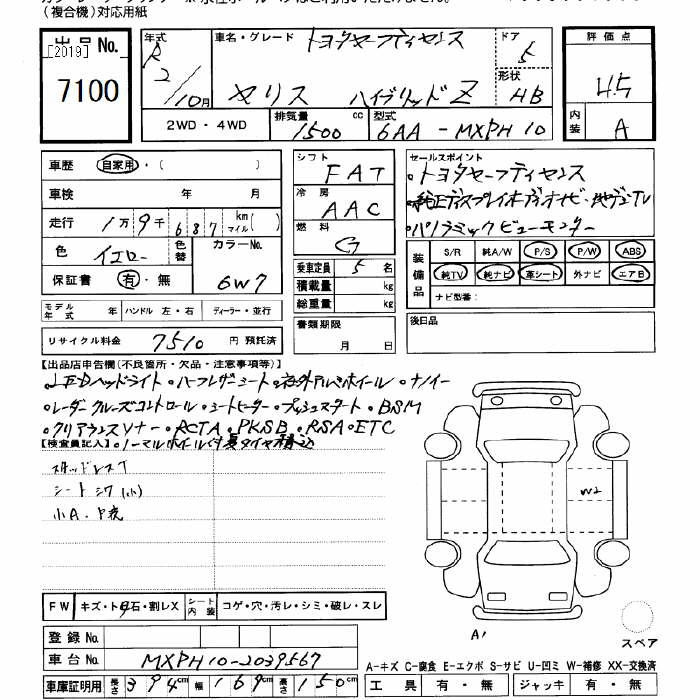 (複合機)対応用紙
出品 No. [2019] 7100
年式 R2/10月
車名・グレード トヨタセーフティセンス
ヤリス ハイブリッドZ
ドア 5
形状 HB
評価点 4.5
内装 A
2WD・4WD
排気量 1500 cc
型式 6AA-MXPH10
車歴 自家用・( )
車検 年 月
走行 1万9千687 km マイル( )
色 イエロー 色替 カラーNo. 6W7
保証書 有・無
シフト FAT
冷房 AAC
燃料 G
乗車定員 5名
積載量 kg
総重量 kg
書類期限 月 日
セールスポイント
・トヨタセーフティセンス
・純正ディスプレイオーディオナビ・地デジTV
・パノラミックビューモニター
装備品 S/R 純A/W P/S P/W ABS
純TV 純ナビ 革シート 外ナビ エアB
ナビ型番:
モデル年式 年 ハンドル 左・右 ディーラー・並行
リサイクル料金 7510 円 預託済
後日品
【出品店申告欄(不良箇所・欠品・注意事項等)】
・LEDヘッドライト・ハーフレザーシート・社外アルミホイール・ナノイー
・レーダークルーズコントロール・シートヒーター・プッシュスタート・BSM
・クリアランスソナー・RCTA・PKSB・RSA・ETC
【検査員記入】・ノーマルホイール付夏タイヤ積込
スタッドレス
シートシワ(小)
小A・
W2
A1
スペア
FW キズ・ト石・割レX シート内装 コゲ・穴・汚レ・シミ・破レ・スレ
登録 No.
車台 No. MXPH10-2039567
車庫証明用 長さ 394cm 幅 169cm 高さ 150cm
A-キズ C-腐食 E-エクボ S-サビ U-凹ミ W-補修 XX-交換済
工具 有・無 ジャッキ 有・無